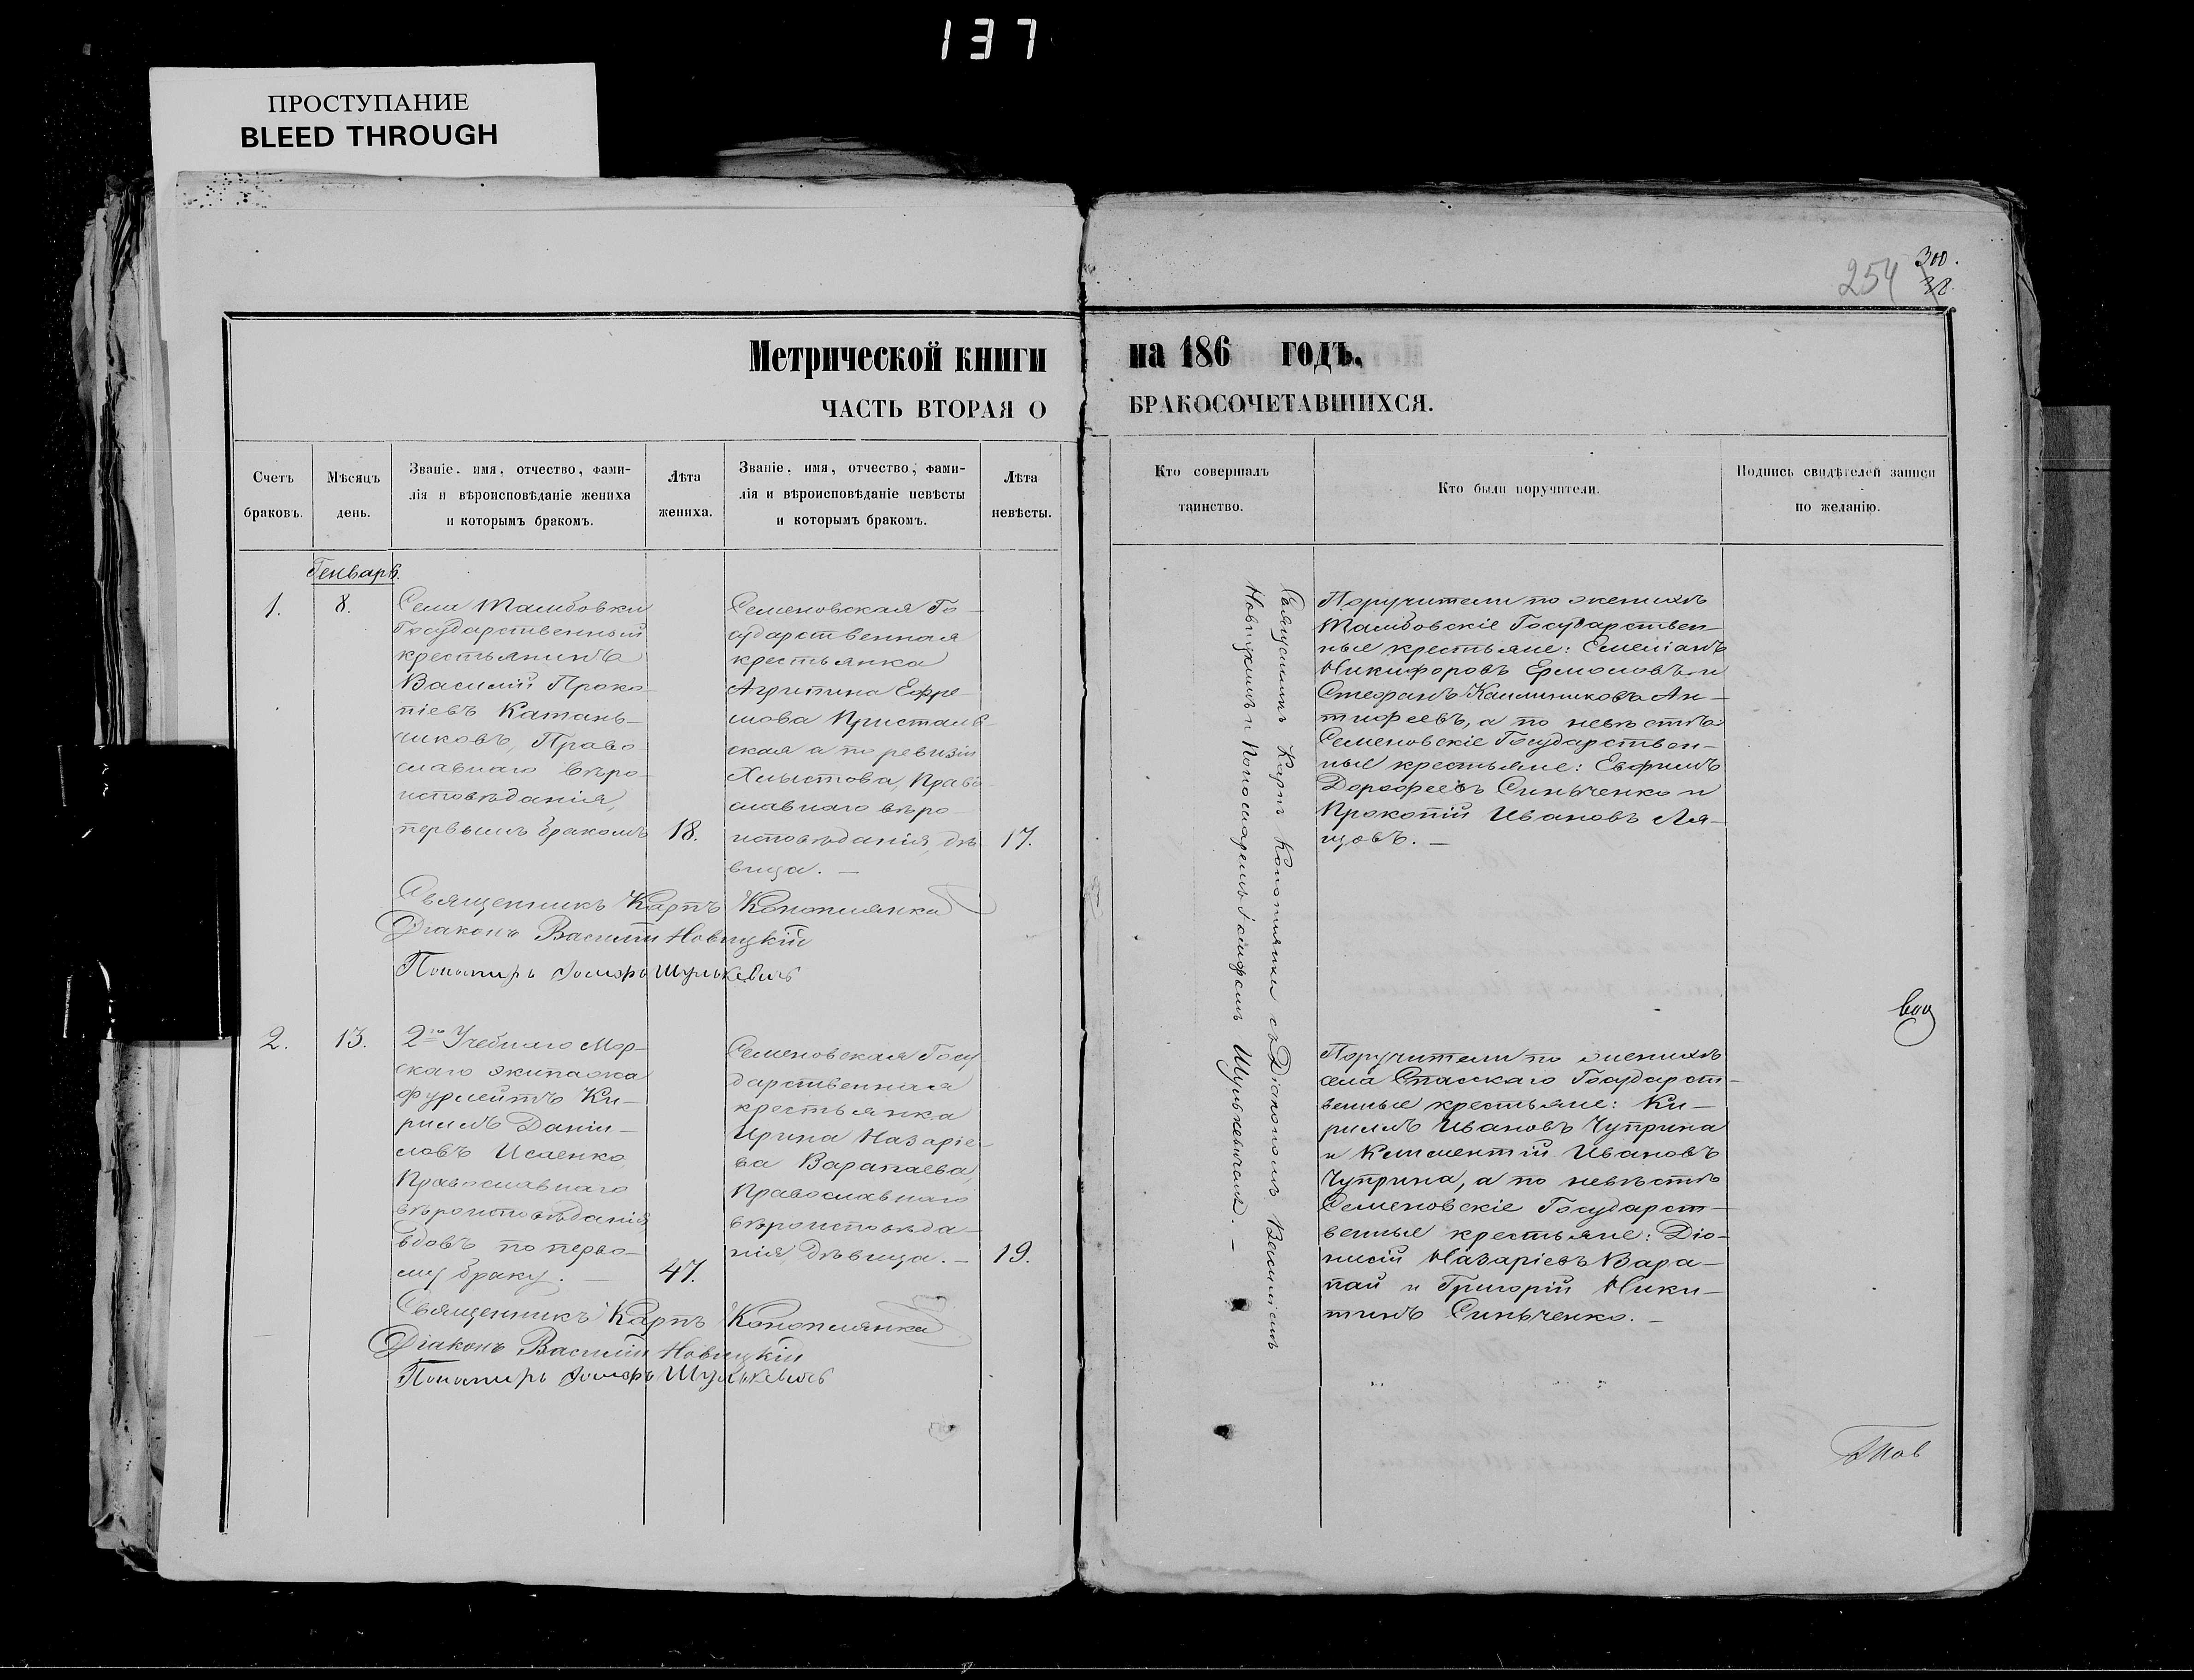 137
ПРОСТУПАНИЕ
BLEED THROUGH
254
300.
Метрической книги на 186 годъ.
ЧАСТЬ ВТОРАЯ О БРАКОСОЧЕТАВШИХСЯ.
Счетъ браковъ.
Мѣсяцъ день.
Званіе, имя, отчество, фами-
лія и вѣроисповѣданіе жениха
и которымъ бракомъ.
Лѣта жениха.
Званіе, имя, отчество, фами-
лія и вѣроисповѣданіе невѣсты
и которымъ бракомъ.
Лѣта невѣсты.
Кто совершалъ
таинство.
Кто были поручители.
Подпись свидѣтелей записи
по желанію.
Генварь.
1.
8.
Села Тамбовки
Государственный
крестьянинъ
Василій Проко-
піевъ Катань-
чиковъ, Право-
славнаго вѣро-
исповѣданія,
первымъ бракомъ
18.
Семеновская Го-
сударственная
крестьянка
Агрипина Ефре-
мова Присталв-
ская а по ревизіи
Хлыстова, Право-
славнаго вѣро-
исповѣданія, дѣ-
вица. —
17.
Священникомъ Карпъ Конопляникомъ съ Діакономъ Василіемъ
Новицкимъ и Пономаремъ Іосифомъ Шулькевичемъ. —
Поручители по женихѣ
Тамбовскіе Государствен-
ные крестьяне: Емеліанъ
Никифоровъ Ермоловъ и
Стефанъ Каллиниковъ Ан-
тиофеевъ, а по невѣстѣ:
Семеновскіе Государствен-
ные крестьяне: Евфимъ
Дорофеевъ Синьченко и
Прокопій Ивановъ Ля-
щовъ. —
Священникъ Карпъ Конопляика
Діаконъ Василій Новицкій
Пономарь Іосифъ Шулькевичъ
2.
13.
2го Учебнаго Мор-
скаго экипажа
фурлейтъ Ки-
риллъ Даніи-
ловъ Исаенко
Православнаго
вѣроисповѣданія,
вдовъ по перво-
му браку. —
47.
Семеновская Госу-
дарственная
крестьянка
Ирина Назаріе-
ва Варапаева,
Православнаго
вѣроисповѣда-
нія, дѣвица. —
19.
Поручители по женихѣ
села Спасскаго Государст-
венные крестьяне: Ки-
риллъ Ивановъ Чуприна
и Климентій Ивановъ
Чуприна, а по невѣстѣ
Семеновскіе Государст-
венные крестьяне: Діо-
нисій Назаріевъ Вара-
пай и Григорій Ники-
тинъ Синьченко. —
Священникъ Карпъ Конопляика
Діаконъ Василій Новицкій
Пономарь Іосифъ Шулькевичъ